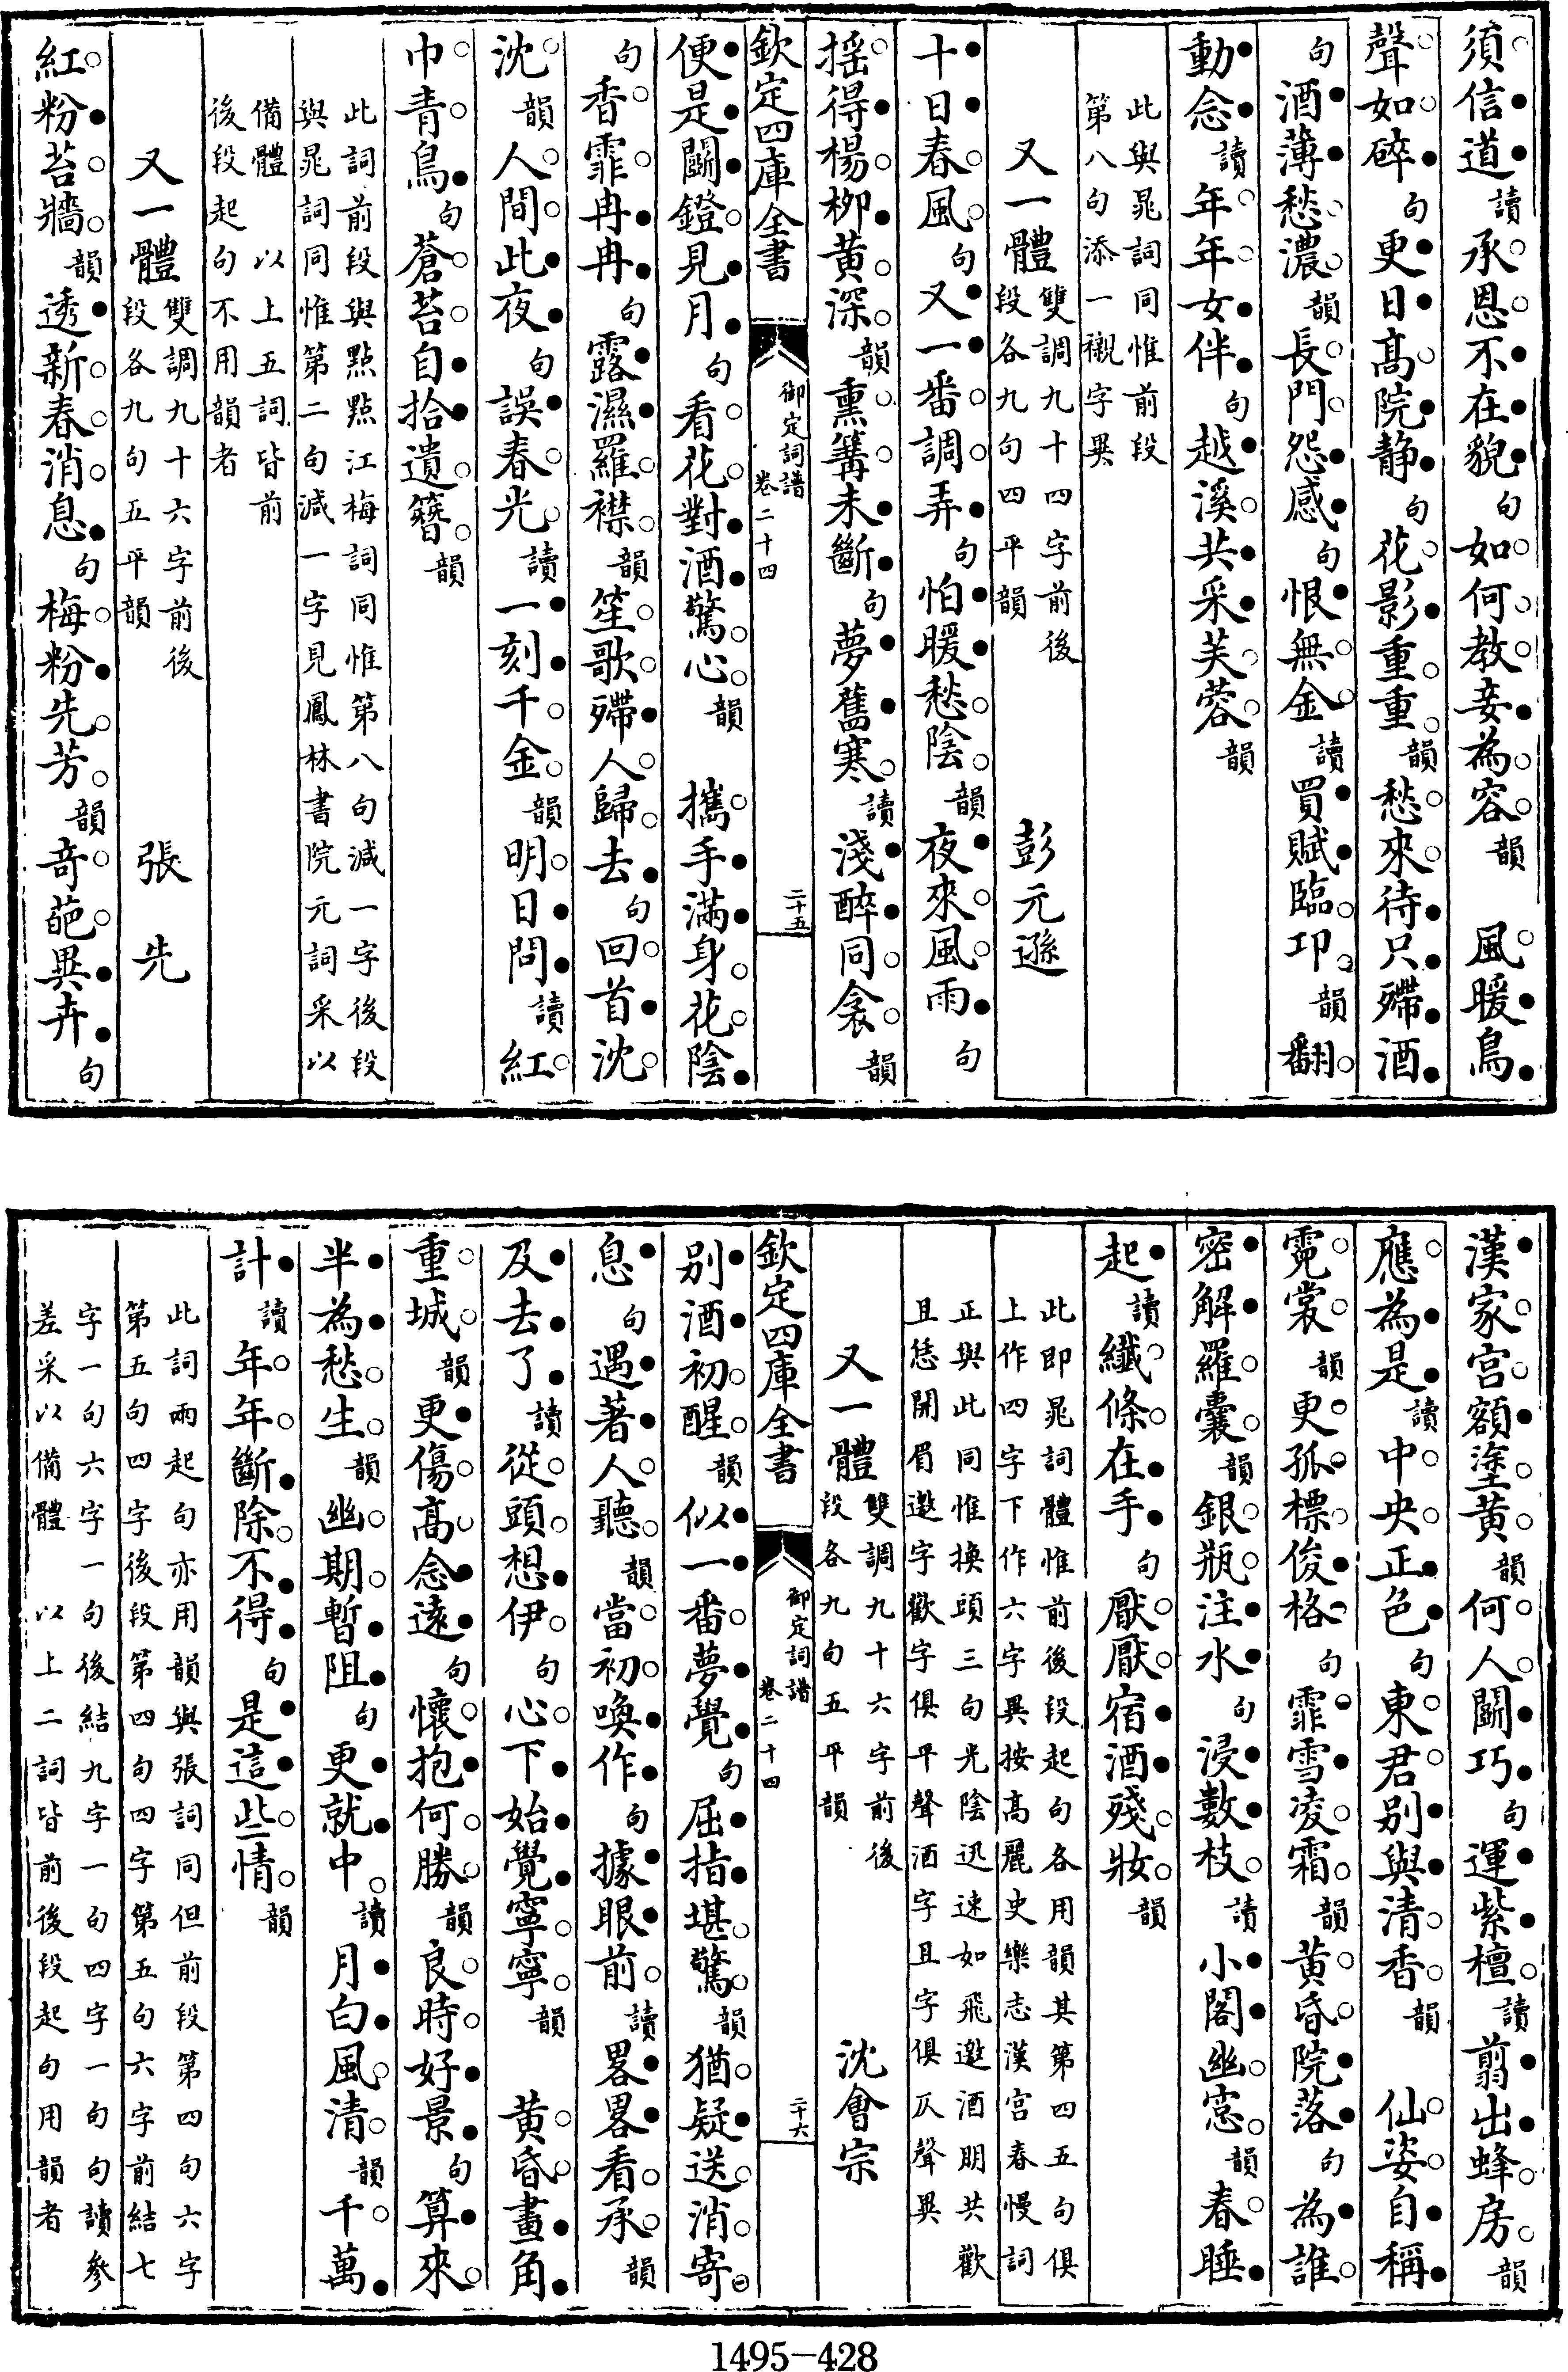 須信道讀承恩不在貌句如何教妾為容韻　風暖鳥
聲如碎句更日髙院静句花影重重韻愁來待只殢酒
句酒薄愁濃韻長門怨感句恨無金讀買賦臨卭韻翻
動念讀年年女伴句越溪共采芙蓉韻
此與晁詞同惟前段
第八句添一襯字異
又一體雙調九十四字前後
段各九句四平韻　彭元遜
十日春風句又一番調弄句怕暖愁陰韻夜來風雨句
揺得楊柳黄深韻熏篝未斷句夢舊寒讀淺醉同衾韻
欽定四庫全書　御定詞譜
卷二十四　二十五
便是鬬鐙見月句看花對酒驚心韻　攜手滿身花陰
句香霏冉冉句露濕羅襟韻笙歌殢人歸去句回首沈
沈韻人間此夜句誤春光讀一刻千金韻明日問讀紅
巾青鳥句蒼苔自拾遺簪韻
此詞前段與點點江梅詞同惟第八句減一字後段
與晁詞同惟第二句減一字見鳳林書院元詞采以
備體　以上五詞皆前
後段起句不用韻者
又一體雙調九十六字前後
段各九句五平韻　張先
紅粉苔牆韻透新春消息句梅粉先芳韻竒葩異卉句
漢家宫額塗黄韻何人鬬巧句運紫檀讀翦出蜂房韻
應為是讀中央正色句東君别與清香韻　仙姿自稱
霓裳韻更孤標俊格句霏雪凌霜韻黄昏院落句為誰
密解羅囊韻銀瓶注水句浸數枝讀小閣幽窓韻春睡
起讀纖條在手句厭厭宿酒殘妝韻
此即晁詞體惟前後段起句各用韻其第四五句俱
上作四字下作六字異按髙麗史樂志漢宫春慢詞
正與此同惟換頭三句光陰迅速如飛邀酒朋共歡
且恁開眉邀字歡字俱平聲酒字且字俱仄聲異
又一體雙調九十六字前後
段各九句五平韻　沈㑹宗
欽定四庫全書　御定詞譜
卷二十四　二十六
别酒初醒韻似一番夢覺句屈指堪驚韻猶疑送消寄
息句遇著人聽韻當初喚作句據眼前讀畧畧看承韻
及去了讀從頭想伊句心下始覺寧寧韻　黄昏畫角
重城韻更傷髙念遠句懷抱何勝韻良時好景句算來
半為愁生韻幽期暫阻句更就中讀月白風清韻千萬
計讀年年斷除不得句是這些情韻
此詞兩起句亦用韻與張詞同但前段第四句六字
第五句四字後段第四句四字第五句六字前結七
字一句六字一句後結九字一句四字一句句讀參
差采以備體　以上二詞皆前後段起句用韻者
1495—428